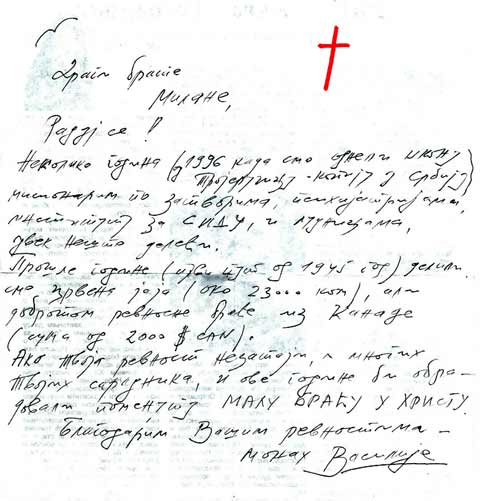 Драги брате
Милане,
Радуј се!
Неколико година (у 1996 када смо однели икону
Тројеручицу - копију у Србију)
мисионарим по затворима, психијатријама,
институт за СИДУ, и лудницама,
увек нешто делећи.
Прошле године (први пут од 1945 год) делили
смо црвена јаја (око 23000 ком), али
добротом ревносне браће из Канаде
(сума од 2000 $ CAN).
Ако твоја ревност и многих
твојих сарадника, и ове године би обра-
довали поменути МАЛУ БРАЋУ У ХРИСТУ
Благодарим Вашим ревностима -
монах Василије